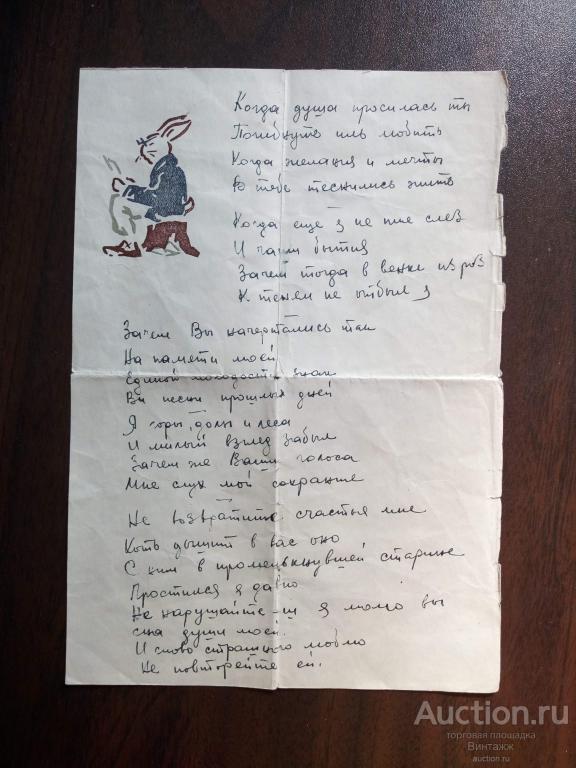 Когда душа просилась ты
Погибнуть иль любить
Когда желания и мечты
К тебе теснились жить
Когда еще я не пил слез
И чаши бытия
Зачем тогда в венке из роз
К теням не отбыл я
Зачем Вы начертались так
На памяти моей
Единой молодости знак
Вы песни прошлых дней
Я горы, долы и леса
И милый взгляд забыл
Зачем же Ваши голоса
Мне слух мой сохранил
Не возвратите счастья мне
Хоть дышит в вас оно
С ним в промелькнувшей старине
Простился я давно
Не нарушайте ж я молю вы
сна души моей.
И слово страшного люблю
Не повторяйте ей.
Auction.ru
торговая площадка
Винтажж
auction.ru